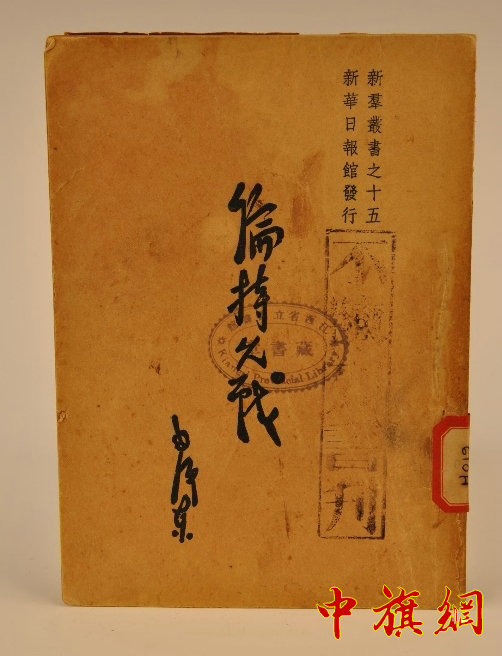 新羣叢書之十五
新華日報館發行
論持久戰
毛澤東
江西省立
藏書
Provincial Library
中旗網